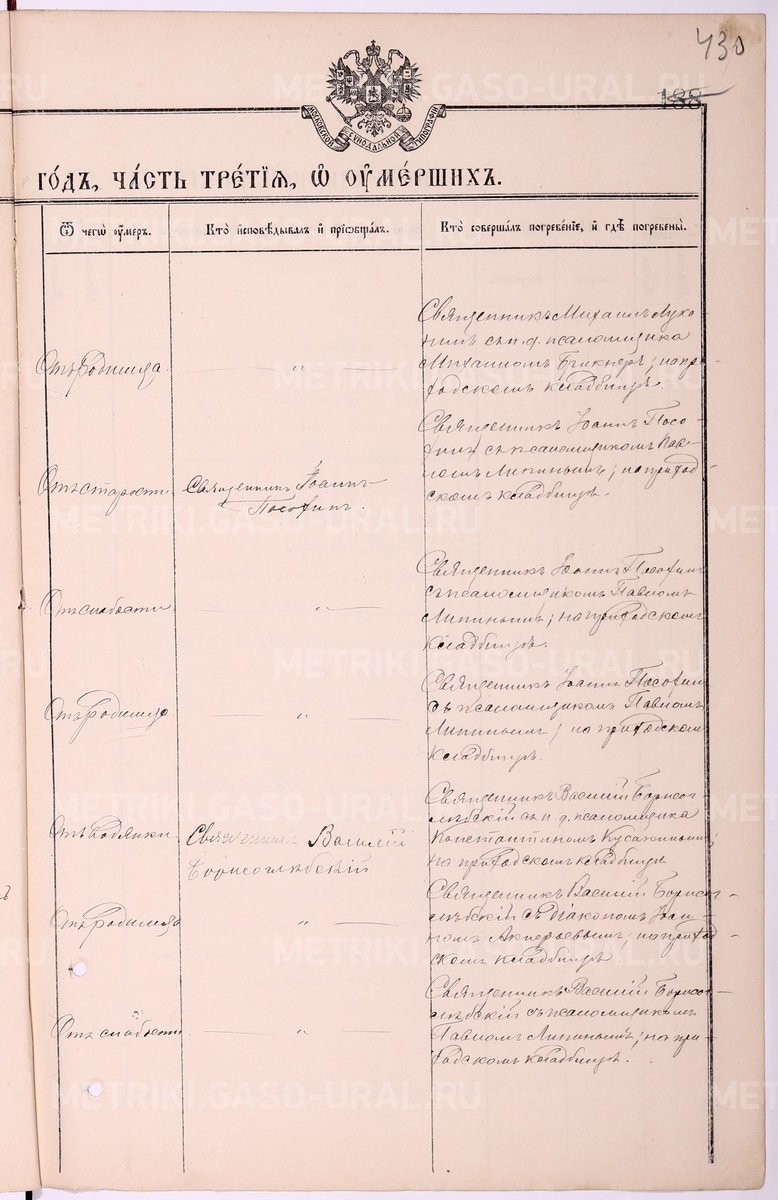 430
188
МОСКОВСКОЙ СѴНОДАЛЬНОЙ ТИПОГРАФІИ
го́дъ, ча́сть тре́тїѧ, ѡ҆ ᲂу҆ме́ршихъ.
Ѿ чегѡ̀ ᲂу҆́меръ.
Кто̀ и҆сповѣ́дывалъ и҆ прїѡбща́лъ.
Кто̀ соверша́лъ погребе́нїе, и҆ гдѣ̀ погребены̀.
Отъ родимца
— „ —
Священникъ Михаилъ
нинъ съ и. д. псаломщика
Михаиломъ Брикнеръ; на при-
ходскомъ кладбищѣ.
Отъ старости
Священникъ Іоаннъ
Пософинъ.
Священникъ Іоаннъ Посо-
финъ съ псаломщикомъ Пав-
ломъ Липинымъ; на приход-
скомъ кладбищѣ.
Отъ слабости
— „ —
Священникъ Іоаннъ Пософинъ
съ псаломщикомъ Павломъ
Липинымъ; на приходскомъ
кладбищѣ.
Отъ родимца
— „ —
Священникъ Іоаннъ Пософинъ
съ псаломщикомъ Павломъ
Липинымъ; на приходскомъ
кладбищѣ.
Отъ водянки
Священникъ Василій
Борисоглѣбскій
Священникъ Василій Борисог-
лѣбскій съ и. д. псаломщика
Константиномъ Кусакинымъ;
на приходскомъ кладбищѣ
Отъ родимца
— „ —
Священникъ Василій Борисог-
лѣбскій съ діакономъ Іоан-
номъ; на приход-
скомъ кладбищѣ
Отъ слабости
— „ —
Священникъ Василій Борисо-
глѣбскій съ псаломщикомъ
Павломъ Липинымъ; на при-
ходскомъ кладбищѣ.
METRIKI.GASO-URAL.RU